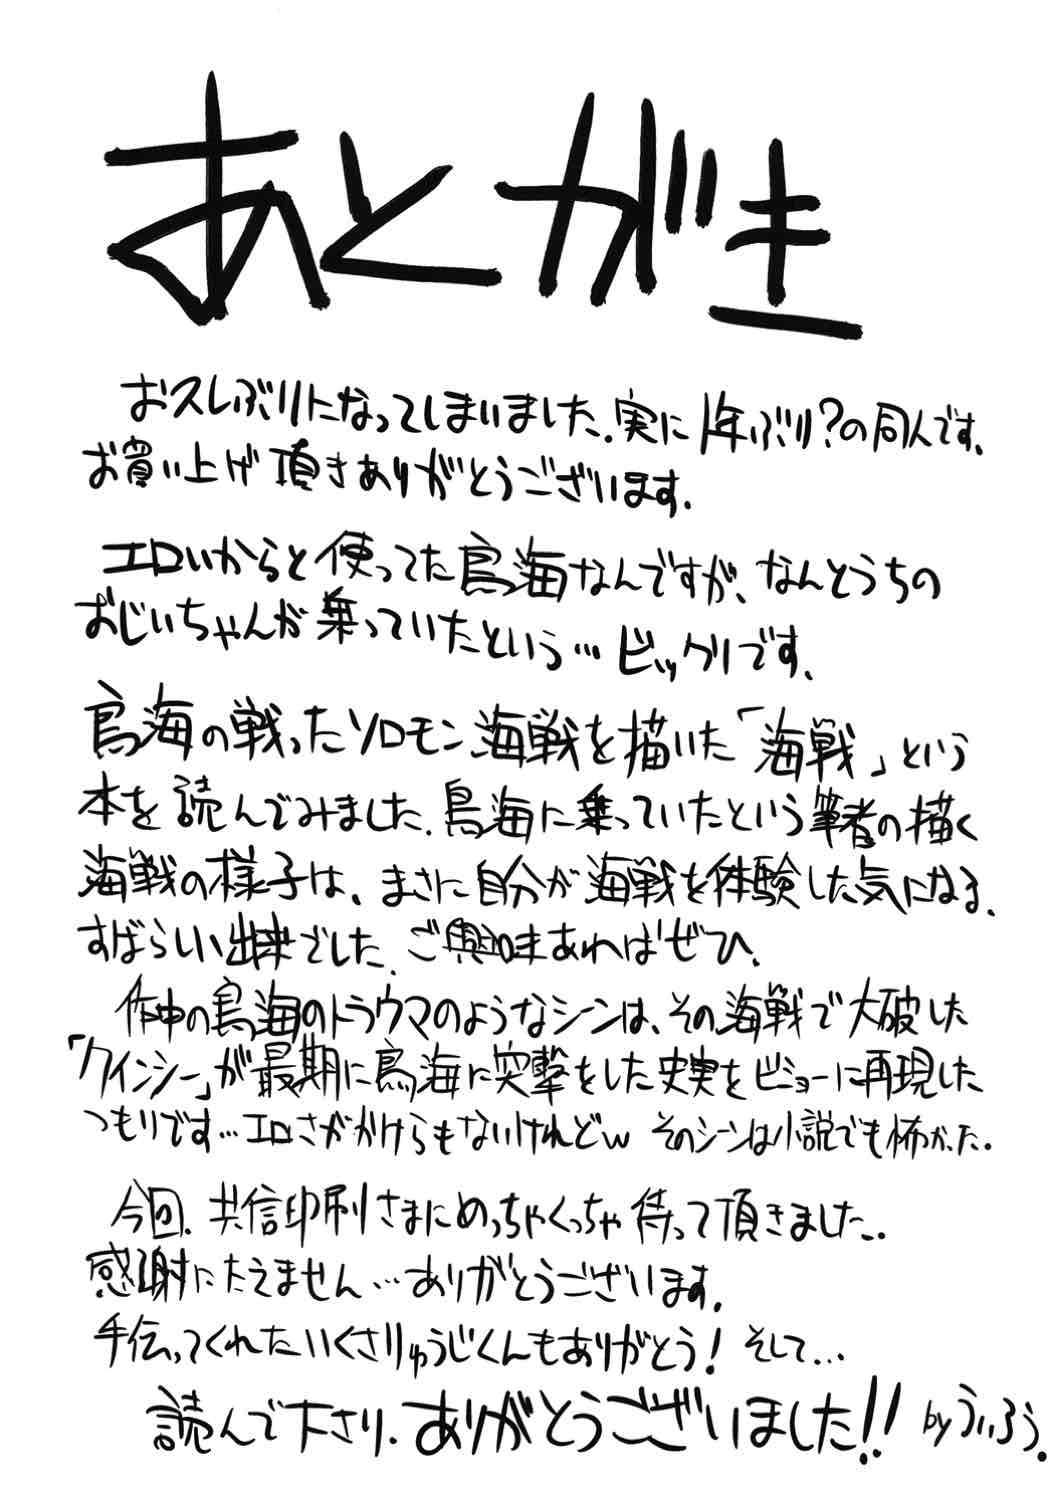 あとがき
お久しぶりになってしまいました.実に1年ぶり?の同人です.
お買い上げ頂きありがとうございます.
エロいからと使ってた鳥海なんですが、なんとうちの
おじいちゃんが乗っていたという…ビックリです.
鳥海の戦ったソロモン海戦を描いた「海戦」という
本を読んでみました.鳥海に乗っていたという筆者の描く
海戦の様子は、まさに自分が海戦を体験した気になる.
すばらしい出来でした.ご興味あればぜひ.
作中の鳥海のトラウマのようなシーンは、その海戦で大破した
「クインシー」が最期に鳥海に突撃をした史実をビミョーに再現した
つもりです…エロさがかけらもないけれどw そのシーンは小説でも怖かった.
今回、共信印刷さまにめっちゃくっちゃ待って頂きました.
感謝にたえません…ありがとうございます.
手伝ってくれたいくさりゅうじくんもありがとう! そして…
読んで下さり、ありがとうございました!! byういろう.